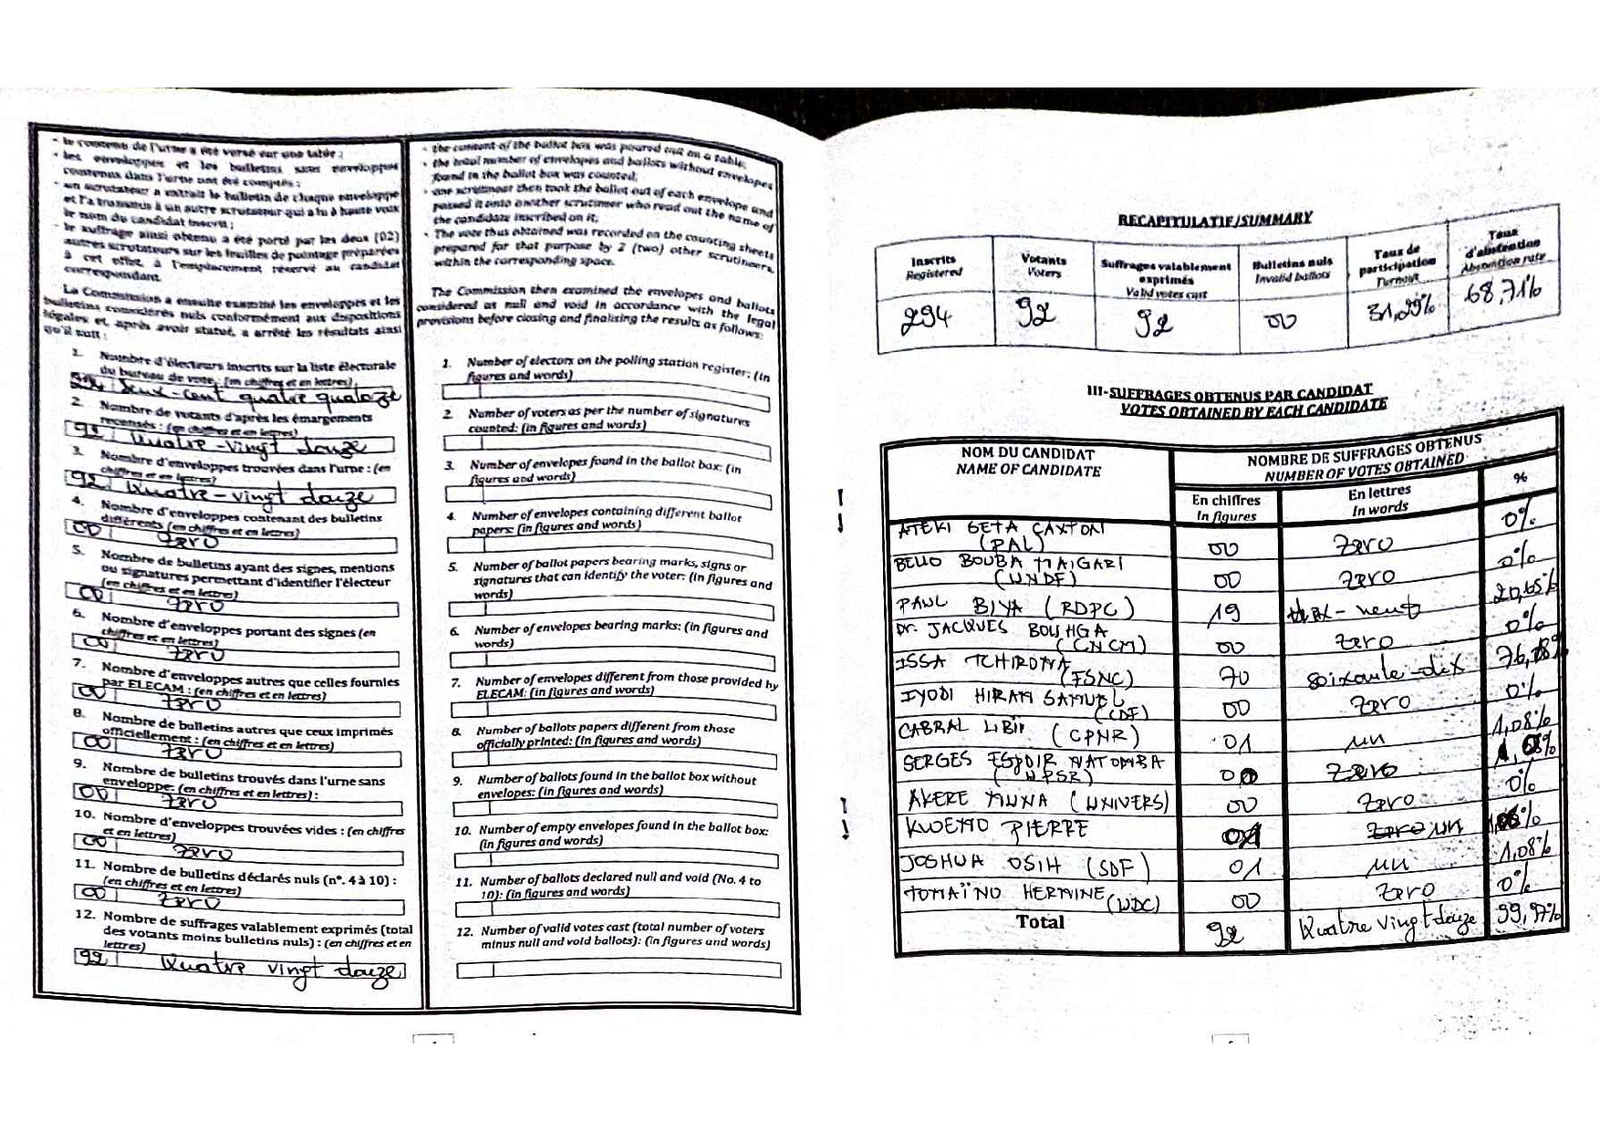 - le contenu de l'urne a été versé sur une table ;
- les enveloppes et les bulletins sans enveloppes
contenus dans l'urne ont été comptés ;
- un scrutateur a extrait le bulletin de chaque enveloppe
et l'a transmis à un autre scrutateur qui a lu à haute voix
le nom du candidat inscrit ;
- le suffrage ainsi obtenu a été porté par les deux (02)
autres scrutateurs sur les feuilles de pointage préparées
à cet effet, à l'emplacement réservé au candidat
correspondant.
La Commission a ensuite examiné les enveloppes et les
bulletins considérés nuls conformément aux dispositions
légales et, après avoir statué, a arrêté les résultats ainsi
qu'il suit :
1. Nombre d'électeurs inscrits sur la liste électorale
du bureau de vote : (en chiffres et en lettres)
294 deux-cent quatre quatoze
2. Nombre de votants d'après les émargements
recensés : (en chiffres et en lettres)
92 Quatre-vingt douze
3. Nombre d'enveloppes trouvées dans l'urne : (en
chiffres et en lettres)
92 Quatre-vingt douze
4. Nombre d'enveloppes contenant des bulletins
différents (en chiffres et en lettres)
00 Zero
5. Nombre de bulletins ayant des signes, mentions
ou signatures permettant d'identifier l'électeur
(en chiffres et en lettres)
00 Zero
6. Nombre d'enveloppes portant des signes (en
chiffres et en lettres)
00 Zero
7. Nombre d'enveloppes autres que celles fournies
par ELECAM : (en chiffres et en lettres)
00 Zero
8. Nombre de bulletins autres que ceux imprimés
officiellement : (en chiffres et en lettres)
00 Zero
9. Nombre de bulletins trouvés dans l'urne sans
enveloppe: (en chiffres et en lettres) :
00 Zero
10. Nombre d'enveloppes trouvées vides : (en chiffres
et en lettres)
00 Zero
11. Nombre de bulletins déclarés nuls (n°. 4 à 10) :
(en chiffres et en lettres)
00 Zero
12. Nombre de suffrages valablement exprimés (total
des votants moins bulletins nuls) : (en chiffres et en
lettres)
92 Quatre vingt douze
- the content of the ballot box was poured out on a table;
- the total number of envelopes and ballots without envelopes
found in the ballot box was counted;
- one scrutineer then took the ballot out of each envelope and
passed it onto another scrutineer who read out the name of
the candidate inscribed on it;
- The vote thus obtained was recorded on the counting sheets
prepared for that purpose by 2 (two) other scrutineers,
within the corresponding space.
The Commission then examined the envelopes and ballots
considered as null and void in accordance with the legal
provisions before closing and finalising the results as follows:
1. Number of electors on the polling station register: (in
figures and words)
2. Number of voters as per the number of signatures
counted: (in figures and words)
3. Number of envelopes found in the ballot box: (in
figures and words)
4. Number of envelopes containing different ballot
papers: (in figures and words)
5. Number of ballot papers bearing marks, signs or
signatures that can identify the voter: (in figures and
words)
6. Number of envelopes bearing marks: (in figures and
words)
7. Number of envelopes different from those provided by
ELECAM: (in figures and words)
8. Number of ballots papers different from those
officially printed: (in figures and words)
9. Number of ballots found in the ballot box without
envelopes: (in figures and words)
10. Number of empty envelopes found in the ballot box:
(in figures and words)
11. Number of ballots declared null and void (No. 4 to
10): (in figures and words)
12. Number of valid votes cast (total number of voters
minus null and void ballots): (in figures and words)
RECAPITULATIF/SUMMARY
Inscrits Registered | Votants Voters | Suffrages valablement exprimés Valid votes cast | Bulletins nuls Invalid ballots | Taux de participation Turnout | Taux d'abstention Abstention rate
294 92 92 00 31,29% 68,71%
III-SUFFRAGES OBTENUS PAR CANDIDAT
VOTES OBTAINED BY EACH CANDIDATE
NOM DU CANDIDAT NOMBRE DE SUFFRAGES OBTENUS
NAME OF CANDIDATE NUMBER OF VOTES OBTAINED
En chiffres En lettres %
In figures In words
ATEKI SETA CAXTON
(PAL) 00 Zero 0%
BELLO BOUBA MAIGARI
(UNDP) 00 Zero 0%
PAUL BIYA (RDPC) 19 dix-neuf 20,65%
Dr. JACQUES BOUHGA
(CNCM) 00 Zero 0%
ISSA TCHIROMA
(FSNC) 70 soixante-dix 76,08%
IYODI HIRAM SAMUEL
(CDF) 00 Zero 0%
CABRAL LIBII (CPNR) 01 un 1,08%
SERGES ESPOIR MATOMBA
(UPSR) 00 Zero
AKERE MUNA (UNIVERS) 00 Zero 0%
KWEMO PIERRE 01 Zero un
JOSHUA OSIH (SDF) 01 un 1,08%
TOMAÏNO HERMINE (UDC) 00 Zero 0%
Total 92 Quatre vingt douze 99,97%